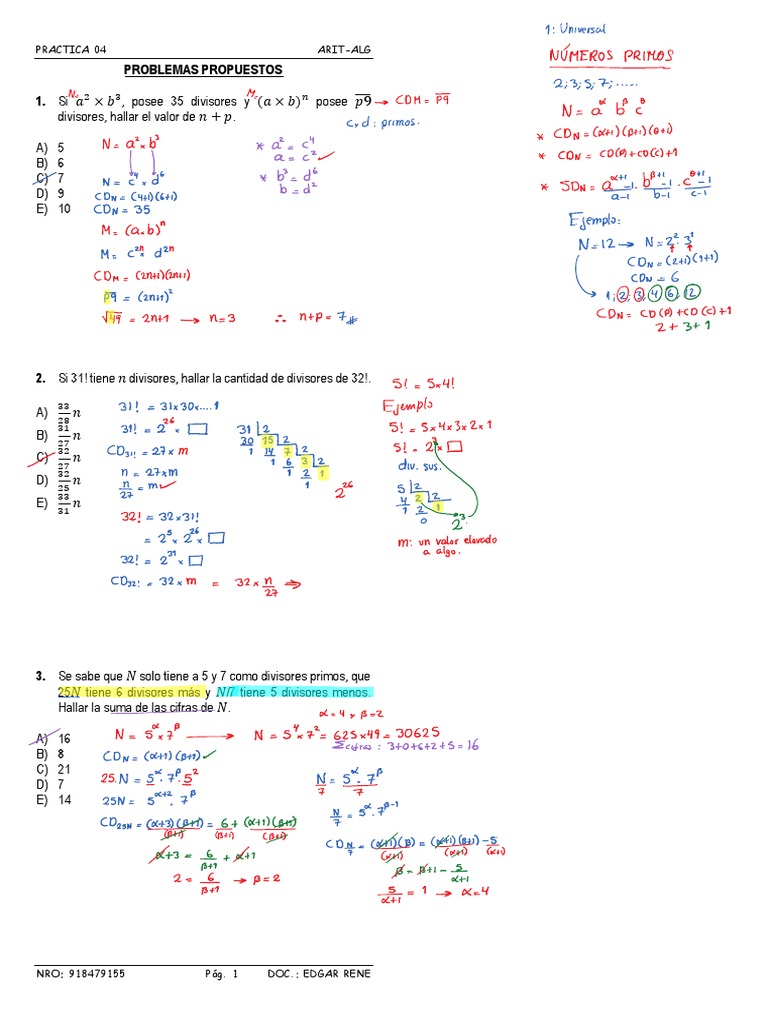 PRACTICA 04 ARIT-ALG
PROBLEMAS PROPUESTOS
1. Si a² × b³, posee 35 divisores y (a × b)ⁿ posee p9
divisores, hallar el valor de n + p.
N= M= → CDM = p9
c y d : primos.
A) 5
B) 6
C) 7
D) 9
E) 10
N = a² × b³
N = c⁴ × d⁶
CDN = (4+1)(6+1)
CDN = 35
M = (a×b)ⁿ
M = c²ⁿ × d²ⁿ
CDM = (2n+1)(2n+1)
p9 = (2n+1)²
√49 = 2n+1 → n=3 ∴ n+p = 7
* a² = c⁴
a = c²
* b³ = d⁶
b = d²
1: Universal
NÚMEROS PRIMOS
2;3;5;7;.....
N = a^α b^β c^θ
* CDN = (α+1)(β+1)(θ+1)
* CDN = CD(P)+CD(C)+1
* SDN = a^(α+1)-1/a-1 · b^(β+1)-1/b-1 · c^(θ+1)-1/c-1
Ejemplo:
N=12 → N = 2² · 3¹
CDN = (2+1)(1+1)
CDN = 6
1; 2; 3; 4; 6; 12
CDN = CD(P)+CD(C)+1
2 + 3 + 1
2. Si 31! tiene n divisores, hallar la cantidad de divisores de 32!.
A) 33/28 n
B) 31/27 n
C) 32/27 n
D) 32/25 n
E) 33/31 n
31! = 31×30×....1
31! = 2²⁶ × □
CD31! = 27 × m
n = 27×m
n/27 = m
32! = 32×31!
= 2⁵ × 2²⁶ × □
32! = 2³¹ × □
CD32! = 32 × m = 32 × n/27 ⇒
31 2
30 15 2
1 14 7 2
1 6 3 2
1 2 1
1
2²⁶
5! = 5×4!
Ejemplo
5! = 5×4×3×2×1
5! = 2³ × □
div. sus.
5 2
4 2 2
1 2 1
0 2³
m: un valor elevado
a algo.
3. Se sabe que N solo tiene a 5 y 7 como divisores primos, que
25N tiene 6 divisores más y N/7 tiene 5 divisores menos.
Hallar la suma de las cifras de N.
α=4 y β=2
A) 16
B) 8
C) 21
D) 7
E) 14
N = 5^α × 7^β → N = 5⁴ × 7² = 625×49 = 30625
Σcifras : 3+0+6+2+5 = 16
CDN = (α+1)(β+1)
25.N = 5^α · 7^β · 5²
25N = 5^(α+2) · 7^β
CD25N = (α+3)(β+1)/(β+1) = 6/(β+1) + (α+1)(β+1)/(β+1)
α+3 = 6/β+1 + α+1
2 = 6/β+1 → β=2
N/7 = 5^α · 7^β/7
N/7 = 5^α · 7^(β-1)
CD N/7 = (α+1)(β)/(α+1) = (α+1)(β+1)/(α+1) - 5/(α+1)
β = β+1 - 5/α+1
5/α+1 = 1 → α=4
NRO; 918479155 Pág. 1 DOC.; EDGAR RENE